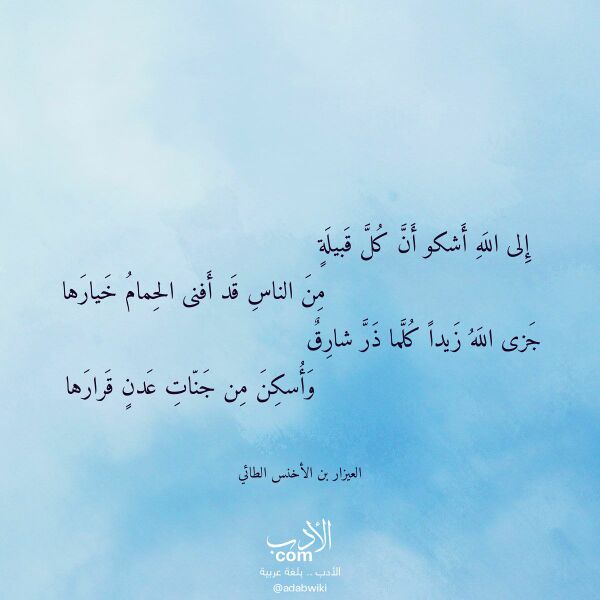 إِلى اللَهِ أَشكو أَنَّ كُلَّ قَبيلَةٍ
مِنَ الناسِ قَد أَفنى الحِمامُ خَيارَها
جَزى اللَهُ زَيداً كُلَّما ذَرَّ شارِقٌ
وَأُسكِنَ مِن جَنّاتِ عَدنٍ قَرارَها
العيزار بن الأخنس الطائي
الأدب
com
الأدب .. بلغة عربية
@adabwiki